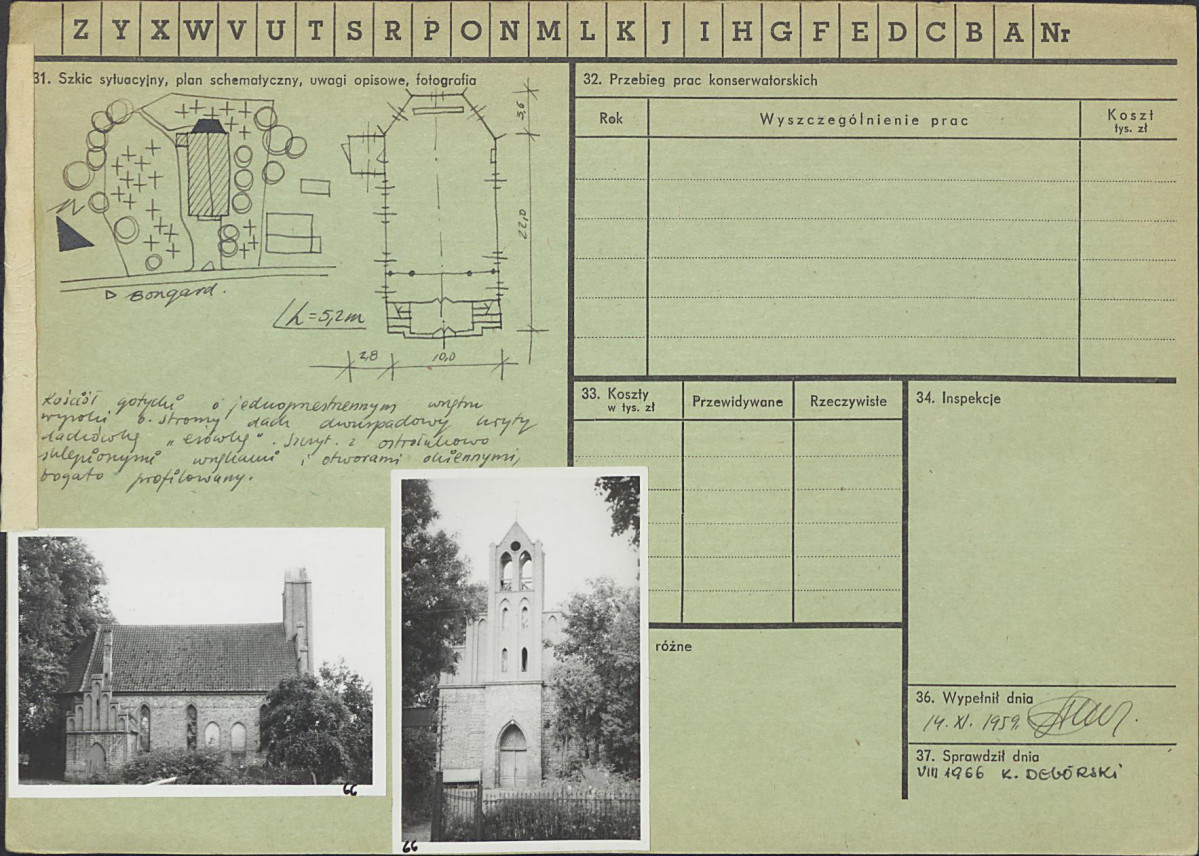 Z Y X W V U T S R P O N M L K J I H G F E D C B A Nr
31. Szkic sytuacyjny, plan schematyczny, uwagi opisowe, fotografia
3,6
22,0
▷ Bongard.
h=5,2m
2,8 10,0
Kościół gotycki o jednoprzestrzennym wnętrzu
wysoki b. stromy dach dwuspadowy kryty
dachówką "esówką". Szczyt. z ostrołukowo
sklepionymi wnękami i otworami okiennymi,
bogato profilowany.
66
66
32. Przebieg prac konserwatorskich
Rok Wyszczególnienie prac Koszt
tys. zł
33. Koszty
w tys. zł
Przewidywane Rzeczywiste
różne
34. Inspekcje
36. Wypełnił dnia
14. XI. 1959.
37. Sprawdził dnia
VIII 1966 K. DEBÓRSKI